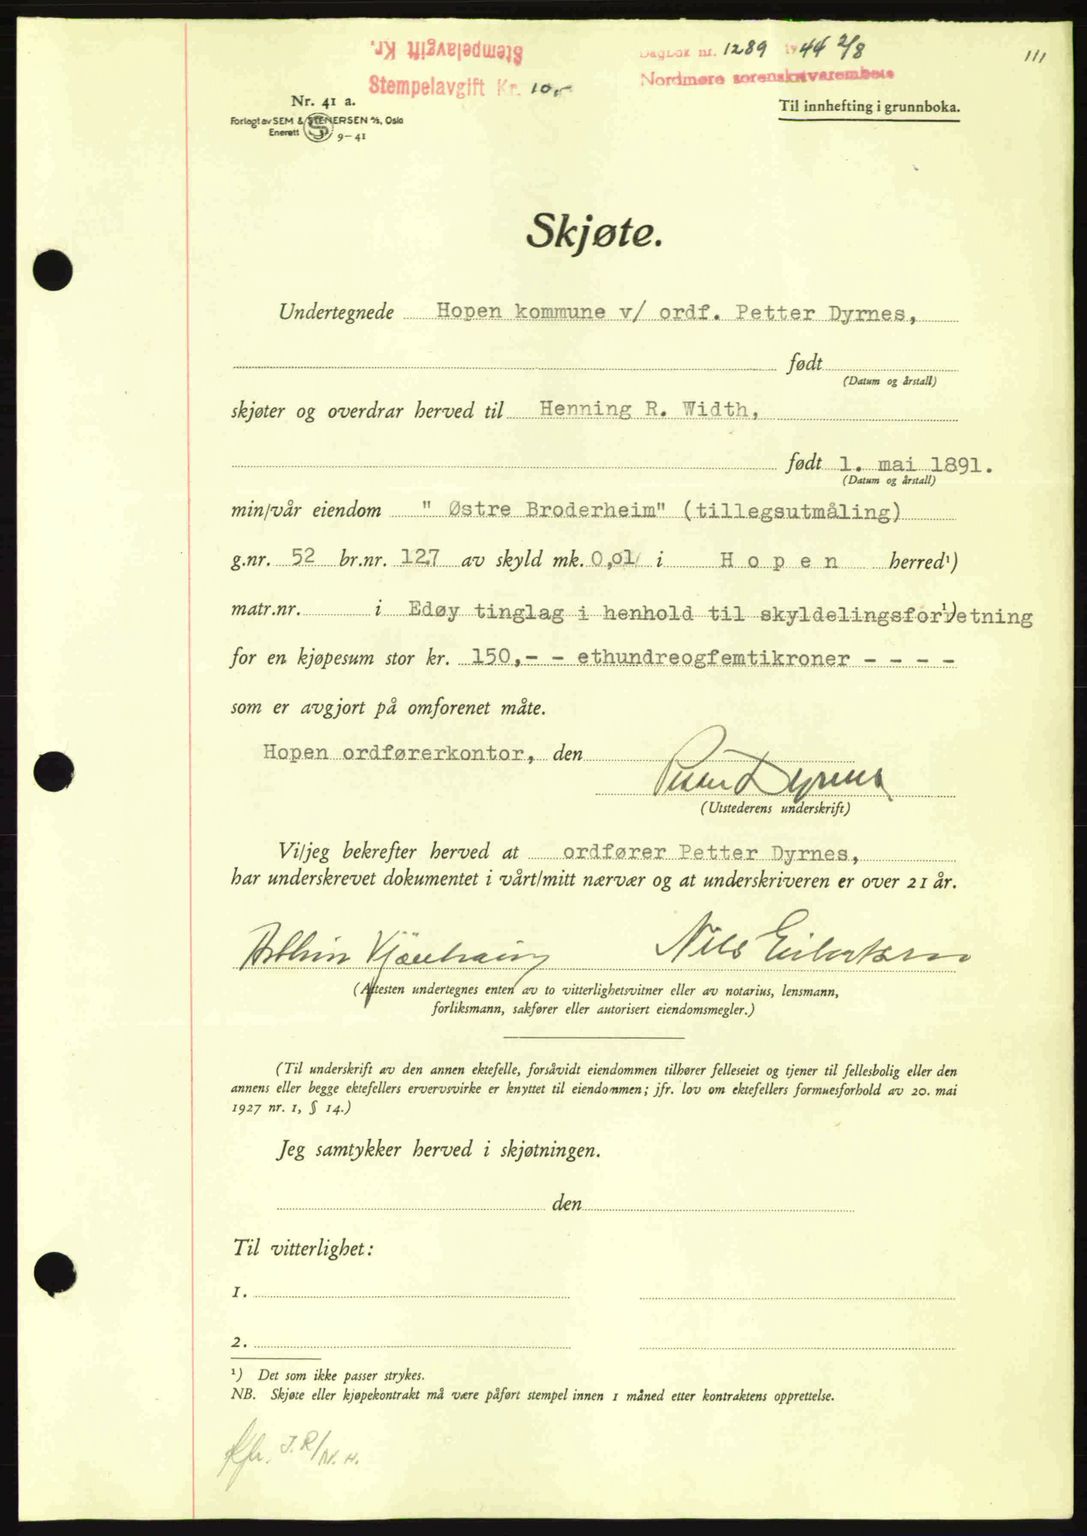 Stempelavgift Kr.
Stempelavgift Kr. 10,-
Dagbok nr. 1289 1944 2/8
Nordmøre sorenskriverembete
111
Nr. 41 a.
Forlagt av SEM & STENERSEN A/S, Oslo
Enerett S 9-41
Til innhefting i grunnboka.
Skjøte.
Undertegnede Hopen kommune v/ ordf. Petter Dyrnes,
født
(Datum og årstall)
skjøter og overdrar herved til Henning R. Width,
født 1. mai 1891.
(Datum og årstall)
min/vår eiendom " Østre Broderheim" (tillegsutmåling)
g.nr. 52 br.nr. 127 av skyld mk. 0,01 i H o p e n herred¹)
matr.nr. i Edøy tinglag i henhold til skyldelingsforretning ¹)
for en kjøpesum stor kr. 150,- - ethundreogfemtikroner - - - -
som er avgjort på omforenet måte.
Hopen ordførerkontor, den
Petter Dyrnes
(Utstederens underskrift)
Vi/jeg bekrefter herved at ordfører Petter Dyrnes,
har underskrevet dokumentet i vårt/mitt nærvær og at underskriveren er over 21 år.
Nils
(Attesten undertegnes enten av to vitterlighetsvitner eller av notarius, lensmann,
forliksmann, sakfører eller autorisert eiendomsmegler.)
(Til underskrift av den annen ektefelle, forsåvidt eiendommen tilhører felleseiet og tjener til fellesbolig eller den
annens eller begge ektefellers ervervsvirke er knyttet til eiendommen; jfr. lov om ektefellers formuesforhold av 20. mai
1927 nr. 1, § 14.)
Jeg samtykker herved i skjøtningen.
den
Til vitterlighet:
1.
2.
¹) Det som ikke passer strykes.
NB. Skjøte eller kjøpekontrakt må være påført stempel innen 1 måned etter kontraktens opprettelse.